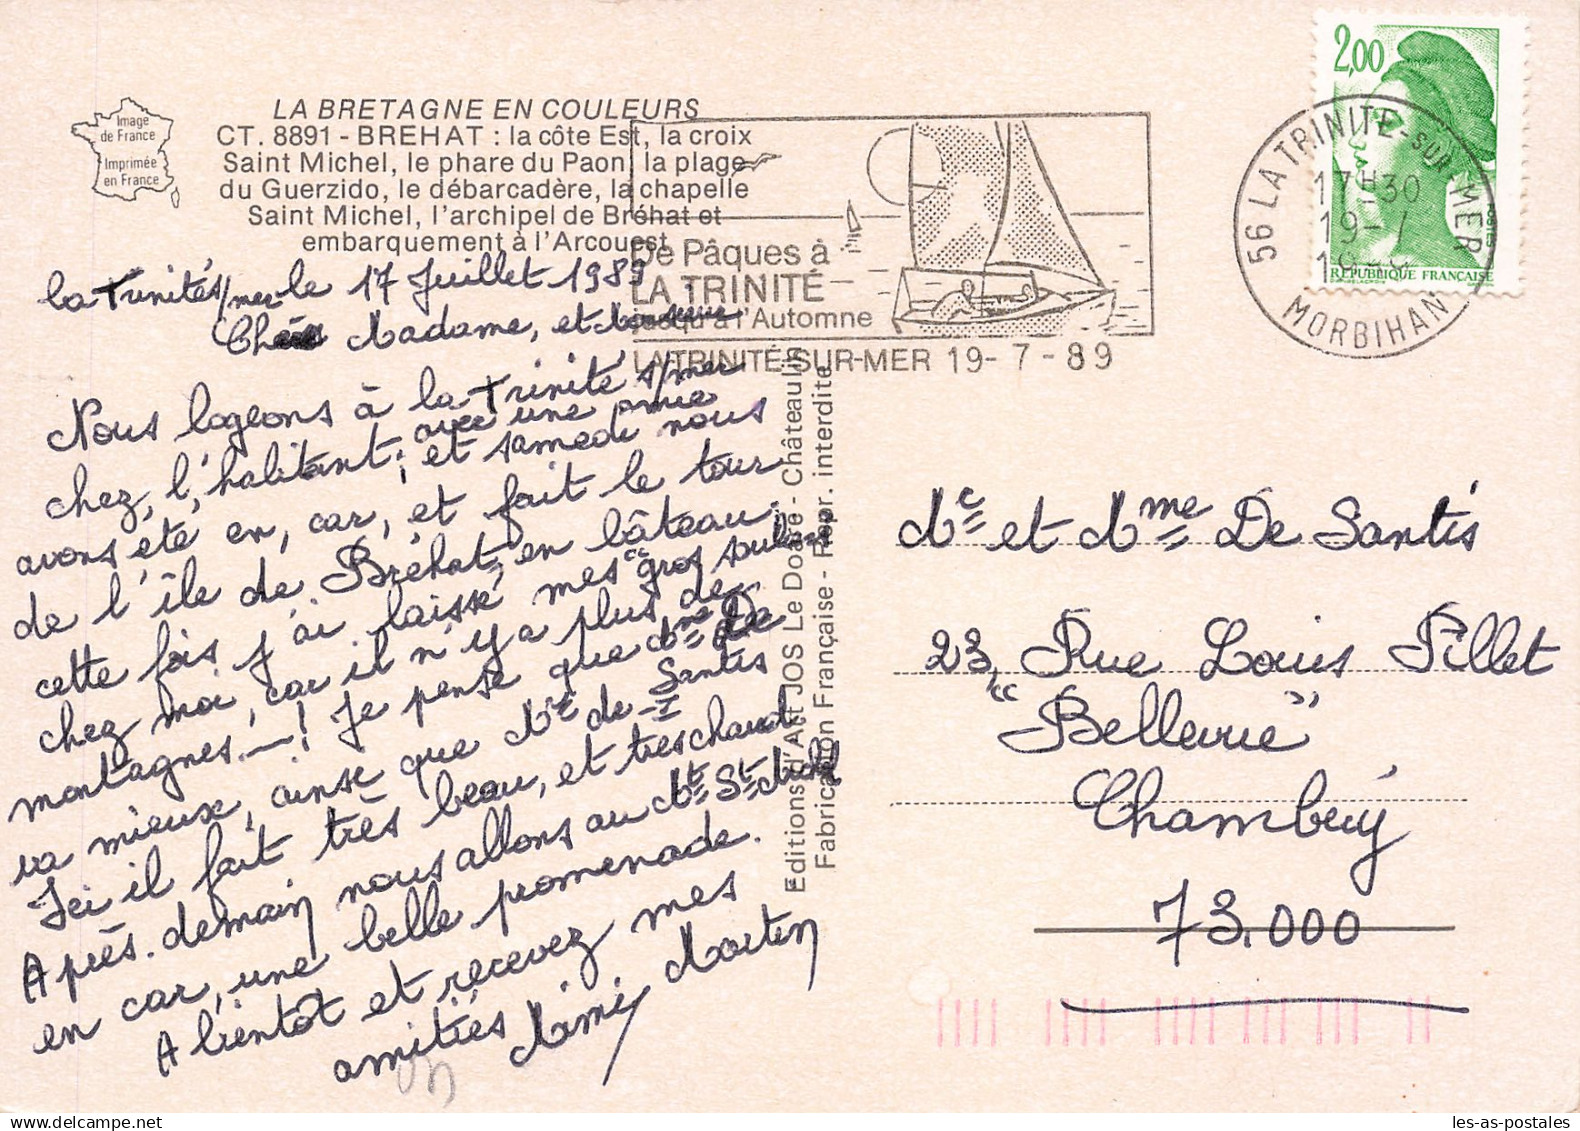 Image
de France
Imprimée
en France
LA BRETAGNE EN COULEURS
CT. 8891 - BREHAT : la côte Est, la croix
Saint Michel, le phare du Paon, la plage
du Guerzido, le débarcadère, la chapelle
Saint Michel, l'archipel de Bréhat et
embarquement à l'Arcouest
De Pâques à
LA TRINITÉ
jusqu'à l'Automne
LA TRINITÉ-SUR-MER 19-7-89
2,00
RÉPUBLIQUE FRANÇAISE
56 LA TRINITE-SUR-MER
17H30
19-7
MORBIHAN
la Trinité s/mer le 17 Juillet 1989
Chère Madame, et Monsieur
Nous logeons à la Trinité s/mer
chez, l'habitant; avec une amie
et samedi nous
avons été en, car, et fait le tour
de l'île de Bréhat, en bâteau;
cette fois j'ai laissé mes "gros souliers
chez moi, car il n'y a plus de
montagnes.—! Je pense que Mme De Santis
va mieux, ainsi que Mr de Santis
Ici il fait très beau, et très chaud
Après-demain nous allons au Mt St Michel
en car, une belle promenade.
A bientôt et recevez mes
amitiés Mimi Martin
Editions d'Art JOS Le Doaré - Châteaulin
Fabrication Française - Repr. interdite
Mr et Mme De Santis
23, Rue Louis Pillet
"Bellevue"
Chambéry
73.000
les-as-postales